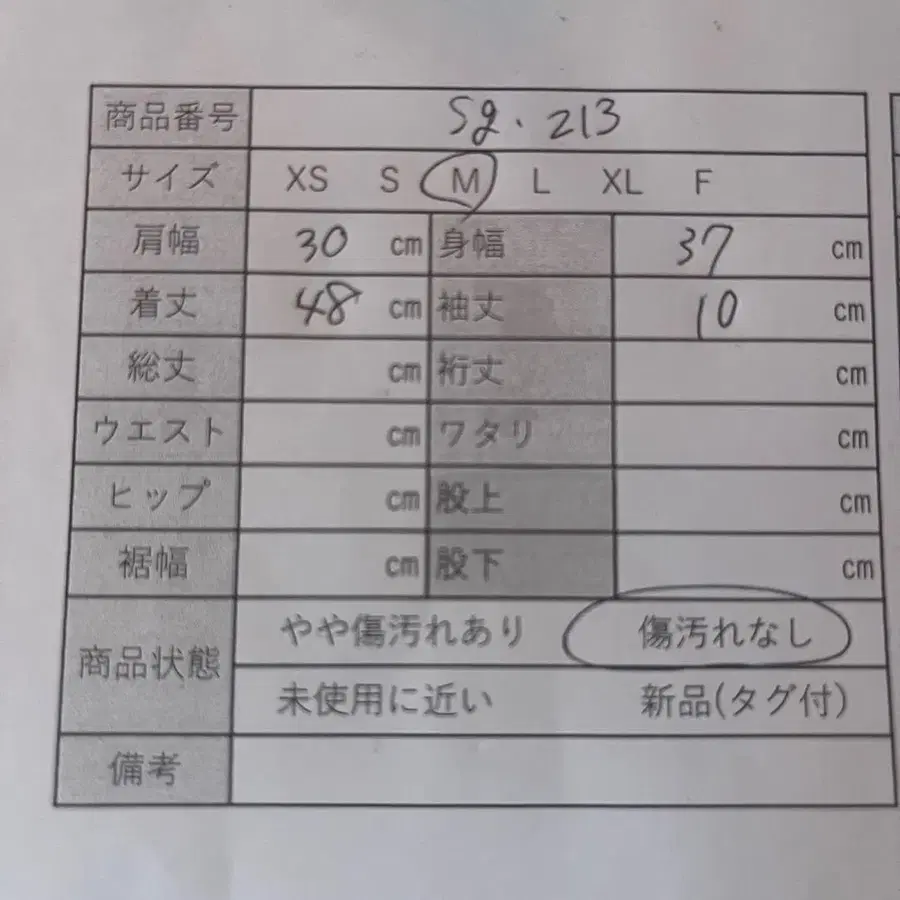 商品番号 Sg. 213
サイズ XS S M L XL F
肩幅 30 cm 身幅 37 cm
着丈 48 cm 袖丈 10 cm
総丈 cm 裄丈 cm
ウエスト cm ワタリ cm
ヒップ cm 股上 cm
裾幅 cm 股下 cm
商品状態 やや傷汚れあり 傷汚れなし
未使用に近い 新品(タグ付)
備考